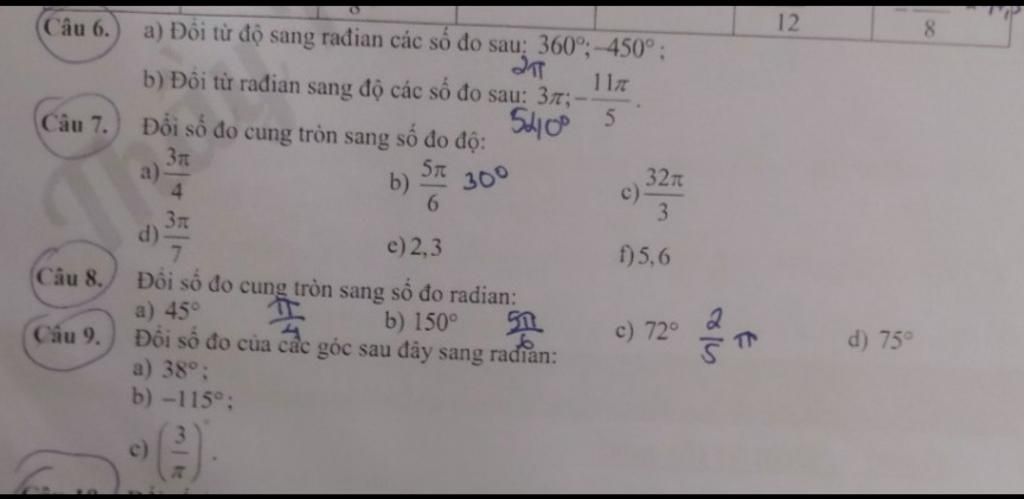 12 8
Câu 6. a) Đổi từ độ sang rađian các số đo sau: 360°; –450° ;
2π
b) Đổi từ rađian sang độ các số đo sau: 3π; –11π/5 .
540°
Câu 7. Đổi số đo cung tròn sang số đo độ:
a) 3π/4 b) 5π/6 30° c) 32π/3
d) 3π/7 e) 2,3 f) 5,6
Câu 8. Đổi số đo cung tròn sang số đo radian:
a) 45° π/4 b) 150° 5π/6 c) 72° 2/5 π d) 75°
Câu 9. Đổi số đo của các góc sau đây sang radian:
a) 38° ;
b) –115° ;
c) (3/π)° .